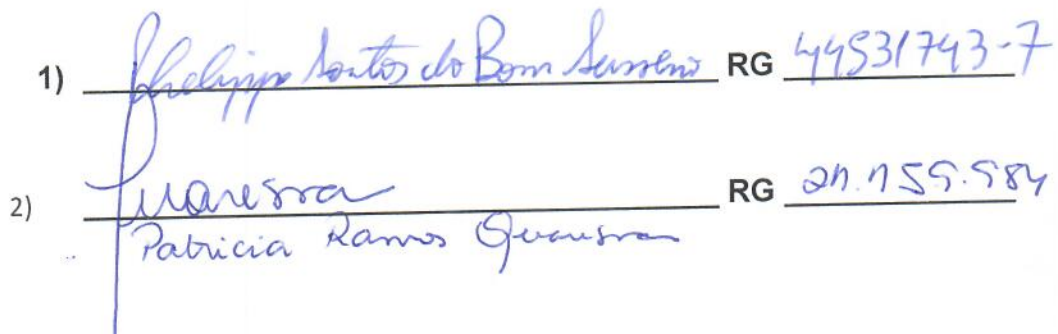 1) Phelippe Santos do Bom Sucesso RG 44531743-7
2) Quaresma RG
Patricia Ramos Quaresma